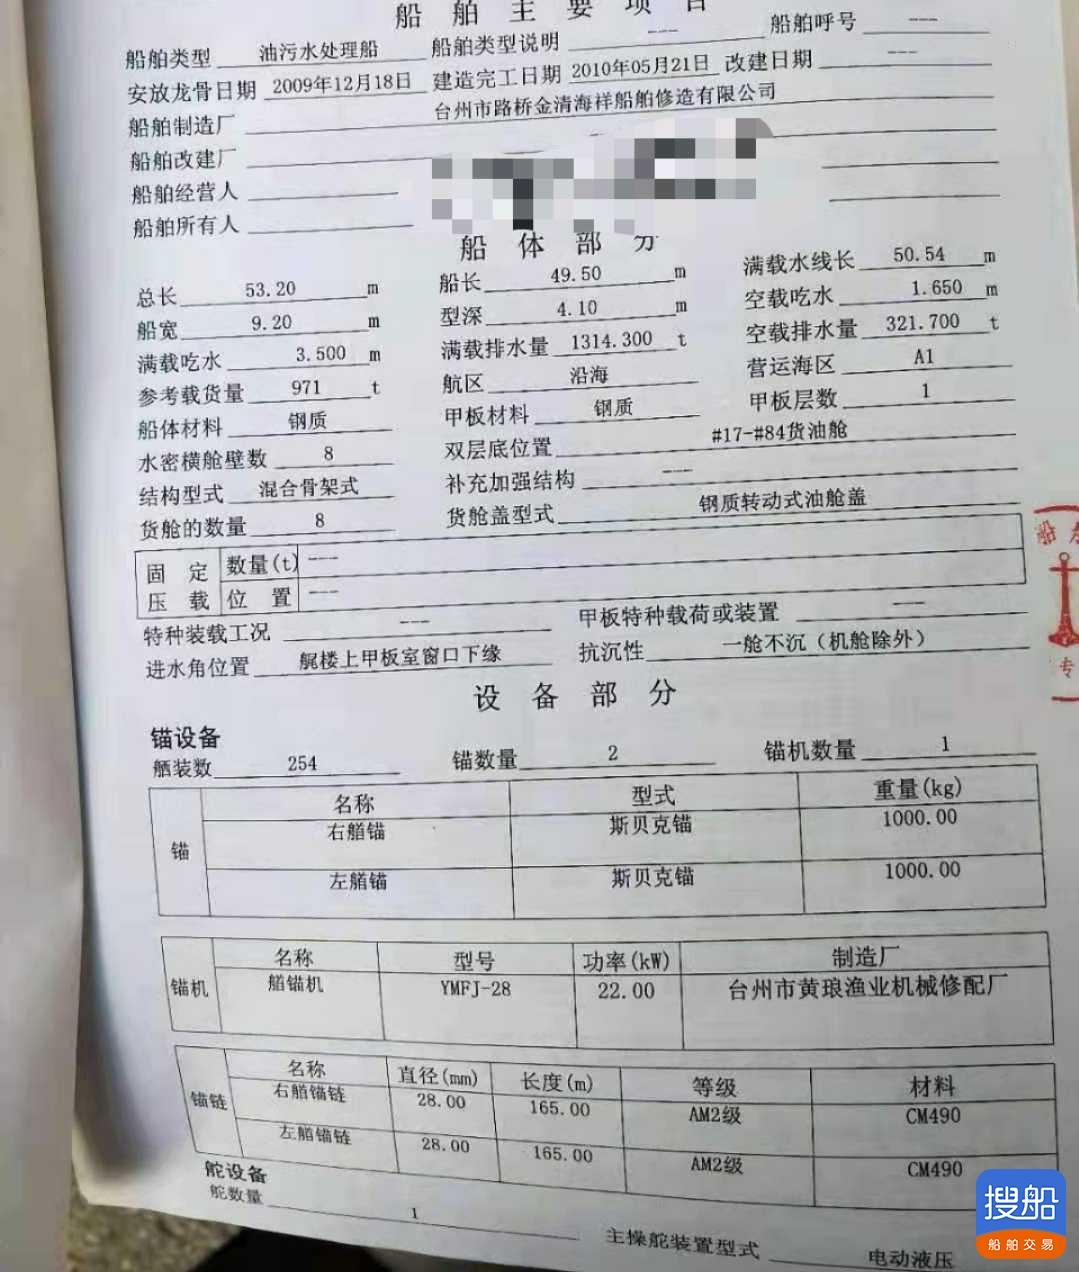 船舶主要项目
船舶类型 油污水处理船 船舶类型说明 --- 船舶呼号 ---
安放龙骨日期 2009年12月18日 建造完工日期 2010年05月21日 改建日期 ---
船舶制造厂 台州市路桥金清海祥船舶修造有限公司
船舶改建厂
船舶经营人
船舶所有人
船体部分
总长 53.20 m 船长 49.50 m 满载水线长 50.54 m
船宽 9.20 m 型深 4.10 m 空载吃水 1.650 m
满载吃水 3.500 m 满载排水量 1314.300 t 空载排水量 321.700 t
参考载货量 971 t 航区 沿海 营运海区 A1
船体材料 钢质 甲板材料 钢质 甲板层数 1
水密横舱壁数 8 双层底位置 #17-#84货油舱
结构型式 混合骨架式 补充加强结构 ---
货舱的数量 8 货舱盖型式 钢质转动式油舱盖
固定压载 数量(t) ---
位置 ---
特种装载工况 --- 甲板特种载荷或装置 ---
进水角位置 艉楼上甲板室窗口下缘 抗沉性 一舱不沉（机舱除外）
设备部分
锚设备
舾装数 254 锚数量 2 锚机数量 1
锚 名称 型式 重量(kg)
右艏锚 斯贝克锚 1000.00
左艏锚 斯贝克锚 1000.00
锚机 名称 型号 功率(kW) 制造厂
艏锚机 YMFJ-28 22.00 台州市黄琅渔业机械修配厂
锚链 名称 直径(mm) 长度(m) 等级 材料
右艏锚链 28.00 165.00 AM2级 CM490
左艏锚链 28.00 165.00 AM2级 CM490
舵设备
舵数量 1 主操舵装置型式 电动液压
船
专
搜船
船舶交易